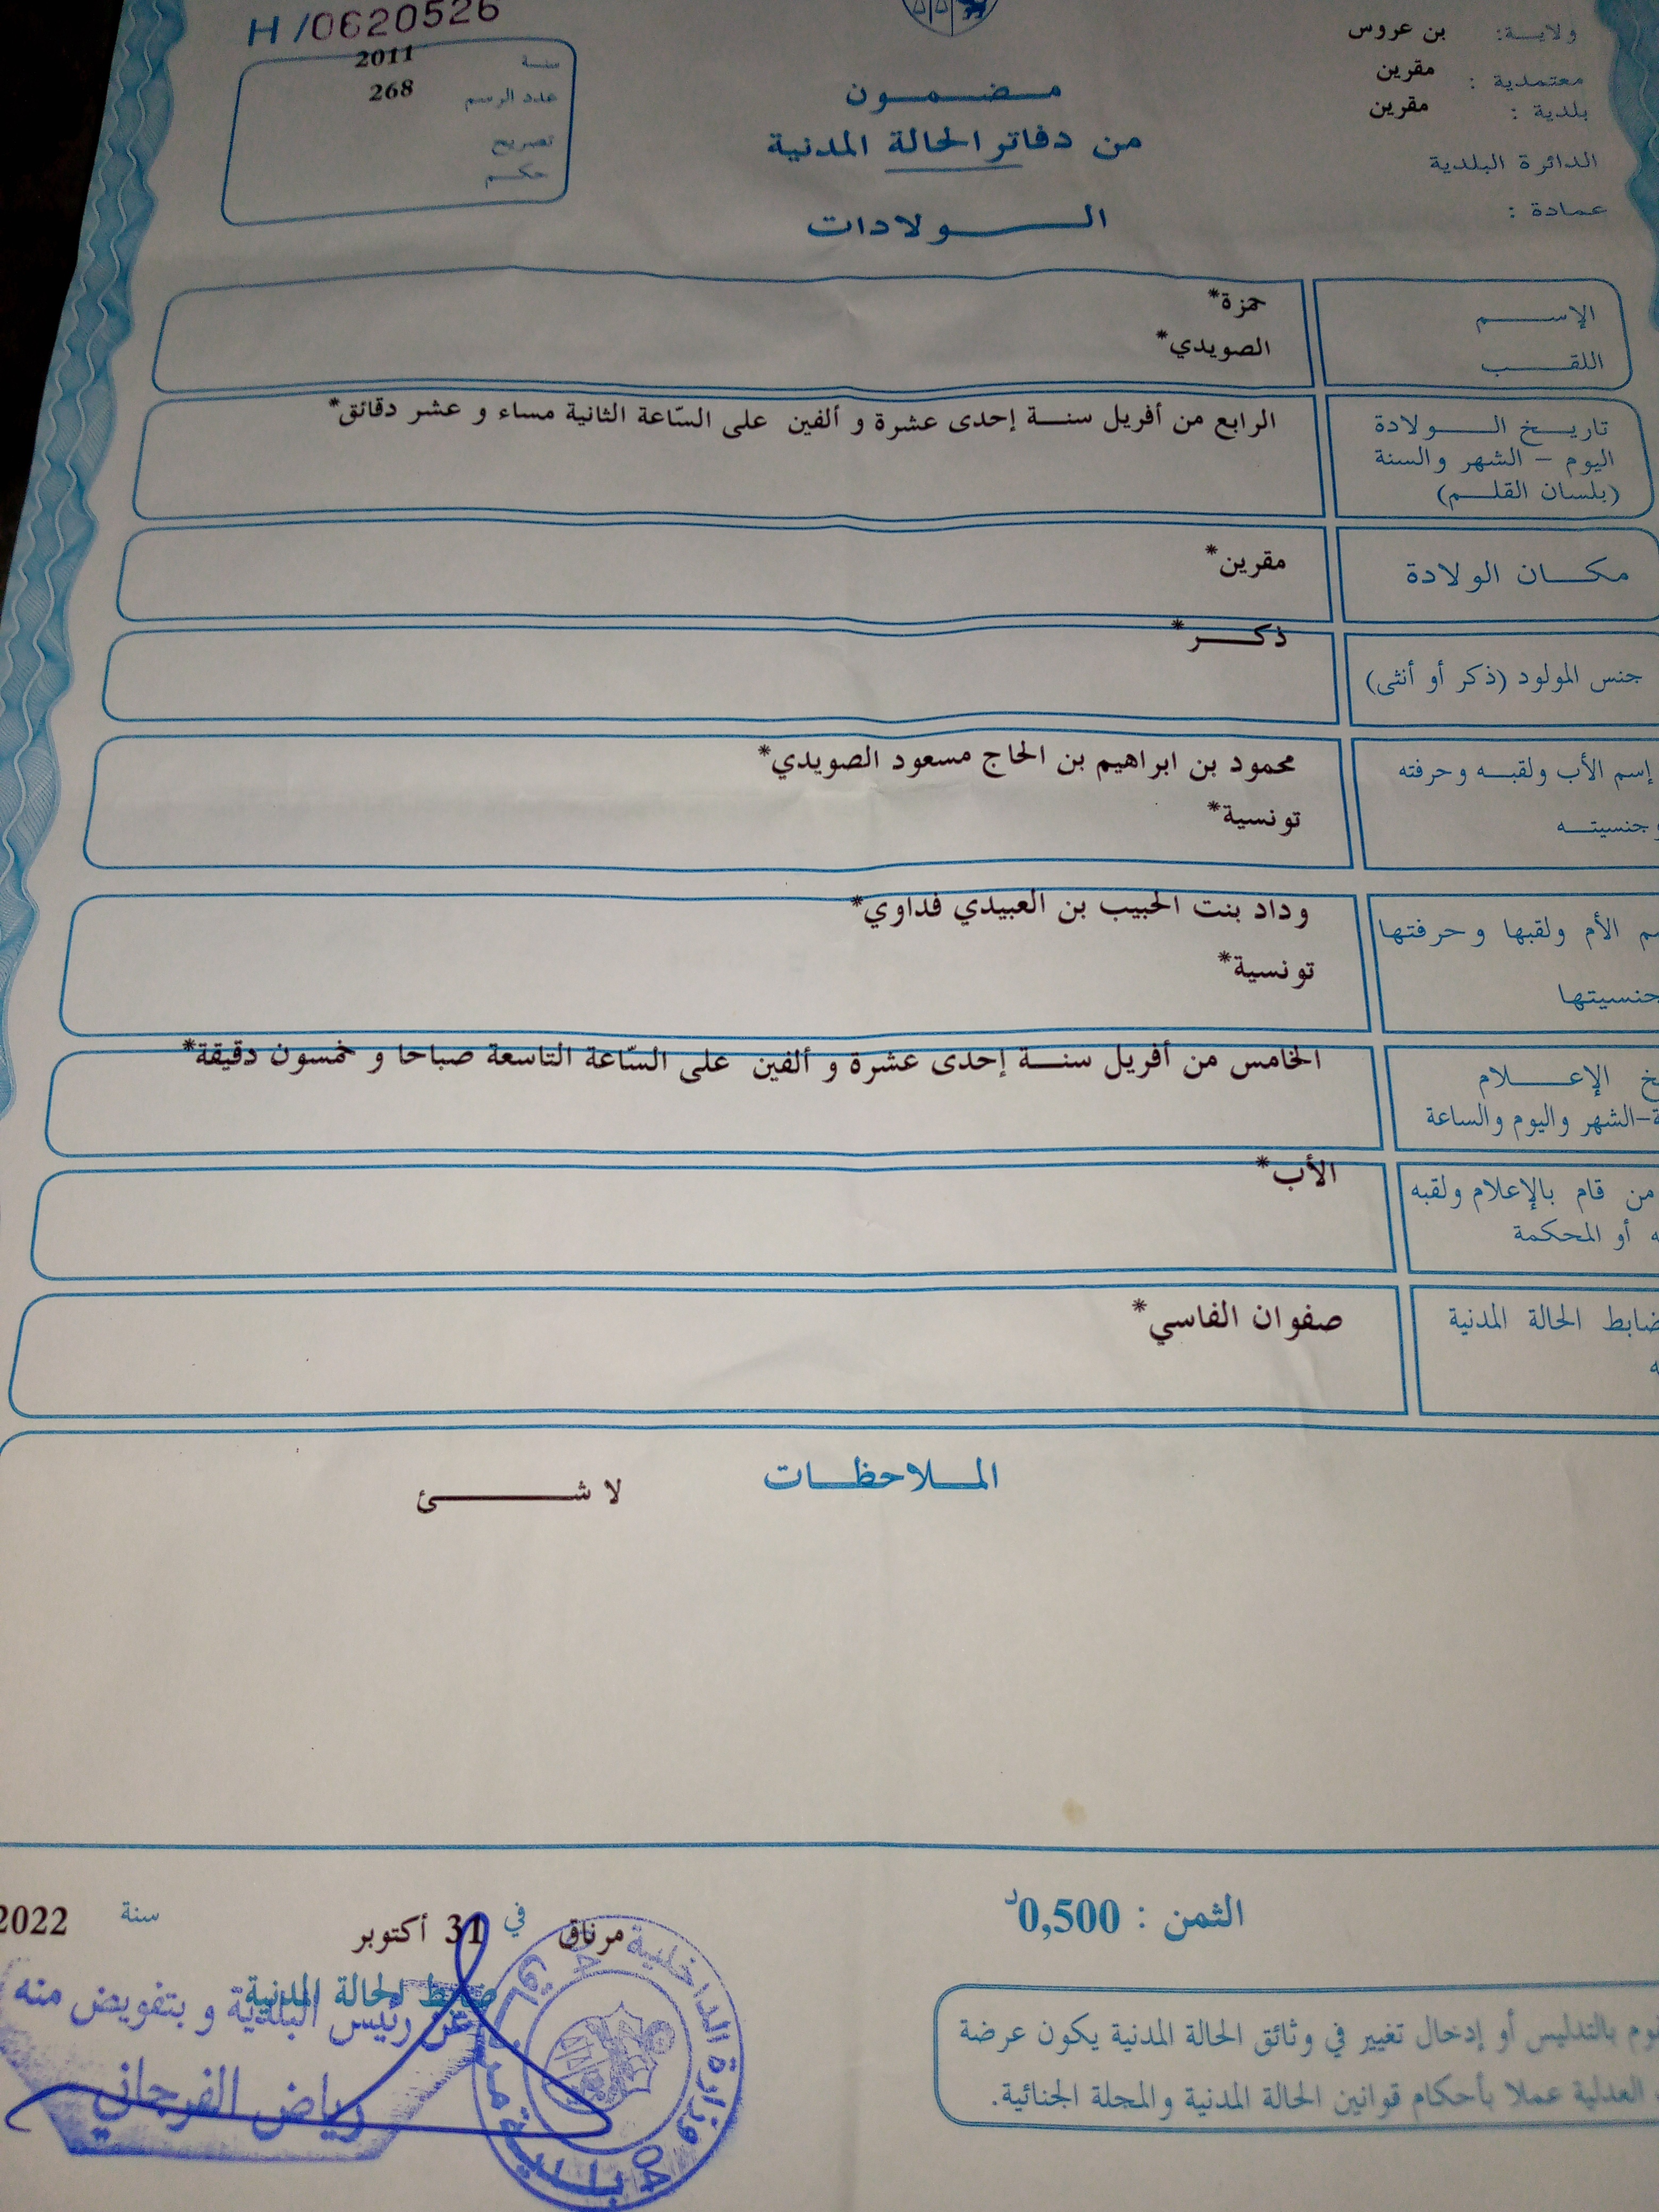 H/0620526
ولاية: بن عروس
معتمدية : مقرين
بلدية : مقرين
الدائرة البلدية
عمادة :
سنة 2011
عدد الرسم 268
تصريح
حكم
مضمون
من دفاتر الحالة المدنية
الولادات
الإسم حمزة*
اللقب الصويدي*
تاريخ الولادة الرابع من أفريل سنة إحدى عشرة و ألفين على السّاعة الثانية مساء و عشر دقائق*
اليوم - الشهر والسنة
(بلسان القلم)
مكان الولادة مقرين*
جنس المولود (ذكر أو أنثى) ذكر*
إسم الأب ولقبه وحرفته محمود بن ابراهيم بن الحاج مسعود الصويدي*
وجنسيته تونسية*
الأم ولقبها وحرفتها وداد بنت الحبيب بن العبيدي فداوي*
جنسيتها تونسية*
الإعلام الخامس من أفريل سنة إحدى عشرة و ألفين على السّاعة التاسعة صباحا و خمسون دقيقة*
-الشهر واليوم والساعة
من قام بالإعلام ولقبه الأب*
أو المحكمة
ضابط الحالة المدنية صفوان الفاسي*
الملاحظات
لا شئ
الثمن : 0,500د
مرناق في 31 أكتوبر سنة 2022
ضابط الحالة المدنية
عن رئيس البلدية و بتفويض منه
رياض الفرجاني
وزارة الداخلية
بالتدليس أو إدخال تغيير في وثائق الحالة المدنية يكون عرضة
العدلية عملا بأحكام قوانين الحالة المدنية والمجلة الجنائية.